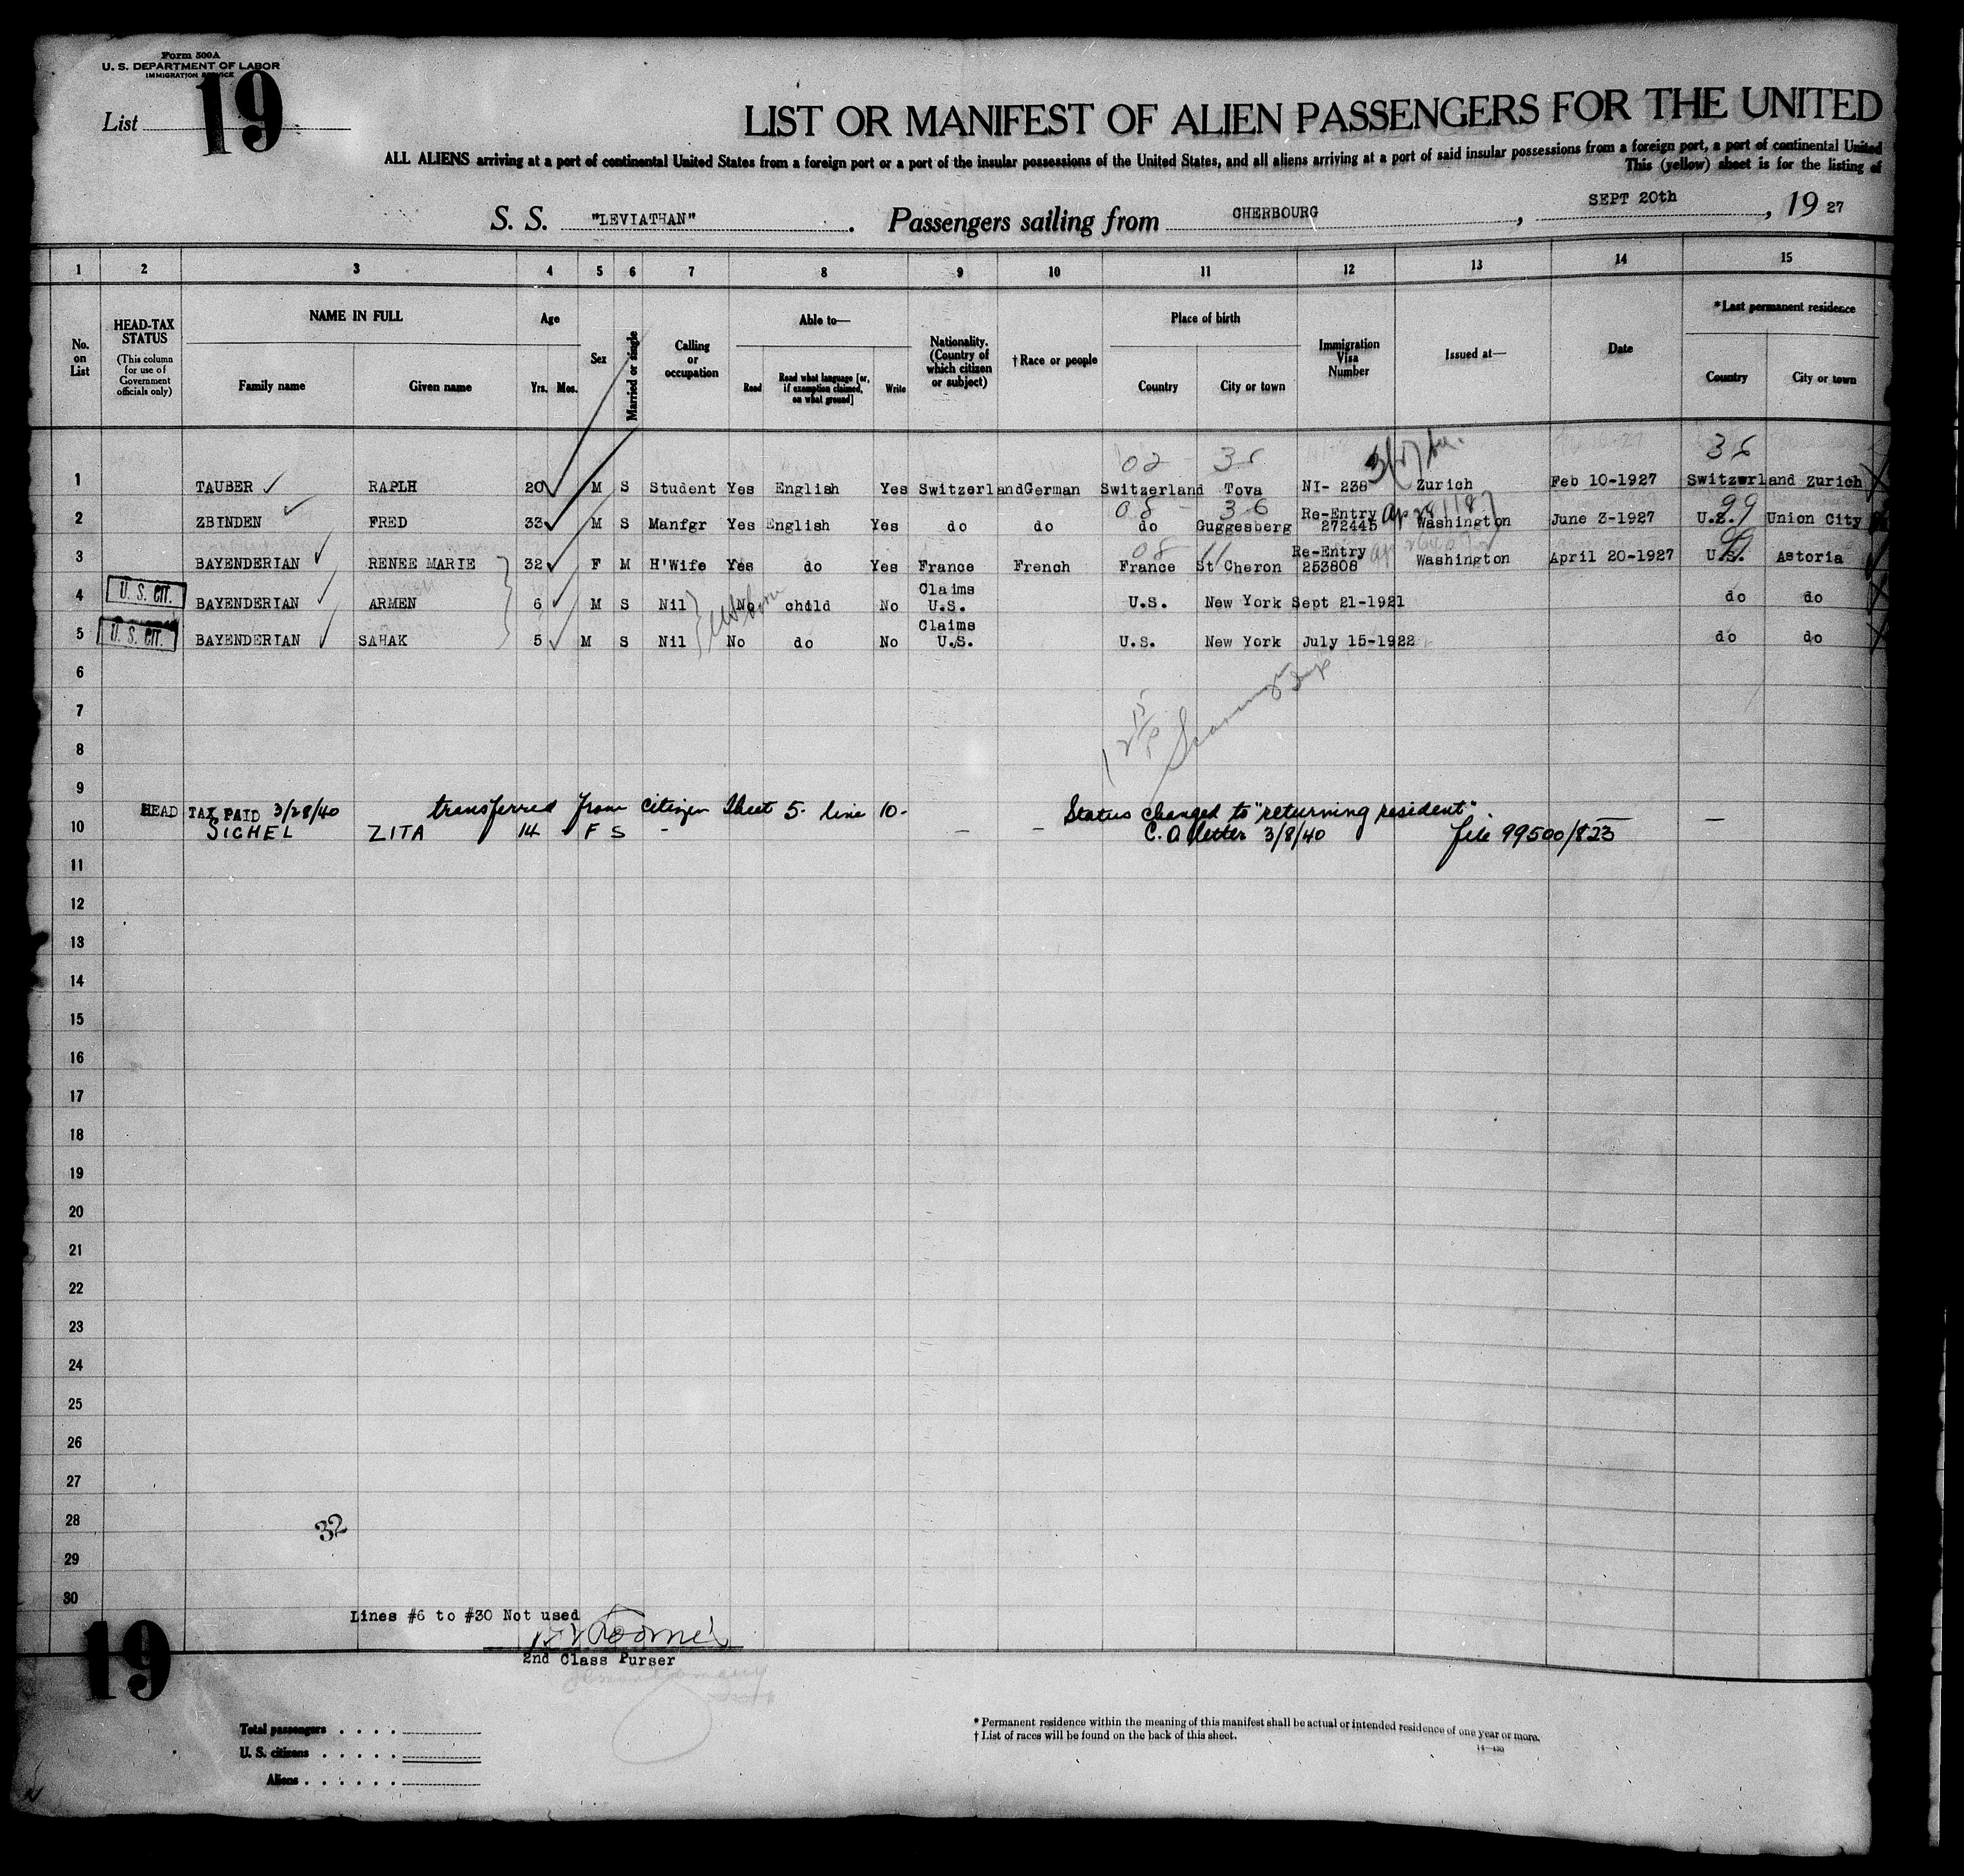 Form 500A
U. S. DEPARTMENT OF LABOR
IMMIGRATION SERVICE
List 19
LIST OR MANIFEST OF ALIEN PASSENGERS FOR THE UNITED
ALL ALIENS arriving at a port of continental United States from a foreign port or a port of the insular possessions of the United States, and all aliens arriving at a port of said insular possessions from a foreign port, a port of continental United
This (yellow) sheet is for the listing of
S. S. "LEVIATHAN". Passengers sailing from CHERBOURG, SEPT 20th, 19 27
1 2 3 4 5 6 7 8 9 10 11 12 13 14 15
No. on List
HEAD-TAX STATUS
(This column for use of Government officials only)
NAME IN FULL
Family name Given name
Age
Yrs. Mos.
Sex
Married or single
Calling or occupation
Able to—
Read
Read what language [or, if exemption claimed, on what ground]
Write
Nationality. (Country of which citizen or subject)
† Race or people
Place of birth
Country City or town
Immigration Visa Number
Issued at—
Date
* Last permanent residence
Country City or town
02 36 36
1 TAUBER RAPLH 20 M S Student Yes English Yes Switzerland German Switzerland Tova NI- 238 Zurich Feb 10-1927 Switzwrland Zurich
08 36 99
2 ZBINDEN FRED 33 M S Manfgr Yes English Yes do do do Guggesberg Re-Entry 272445 Washington June 3-1927 U.S. Union City
08 11
3 BAYENDERIAN RENEE MARIE 32 F M H'Wife Yes do Yes France French France St Cheron Re-Entry 253808 Washington April 20-1927 U.S. Astoria
U. S. CIT.
4 BAYENDERIAN ARMEN 6 M S Nil No child No Claims U.S. U.S. New York Sept 21-1921 do do
U. S. CIT.
5 BAYENDERIAN SAHAK 5 M S Nil No do No Claims U.S. U.S. New York July 15-1922 do do
6
7
8
9
HEAD TAX PAID 3/28/40 transferred from citizen Sheet 5- line 10- Status changed to "returning resident"
10 SICHEL ZITA 14 F S - — — C. O letter 3/8/40 file 99500/823 —
11
12
13
14
15
16
17
18
19
20
21
22
23
24
25
26
27
28
32
29
30
Lines #6 to #30 Not used
2nd Class Purser
19
Total passengers . . . .
U. S. citizens . . . . .
Aliens . . . . . .
* Permanent residence within the meaning of this manifest shall be actual or intended residence of one year or more.
† List of races will be found on the back of this sheet.
14—430